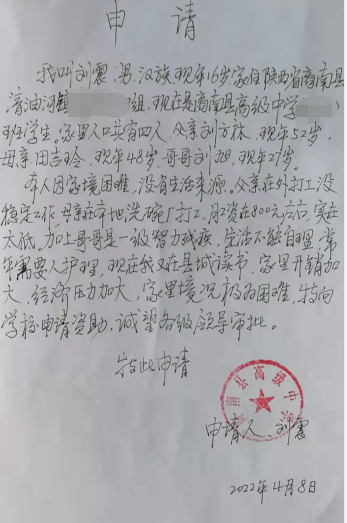 申请
我叫刘震,男,汉族,现年16岁家住陕西省商南县
清油河镇 组,现在是商南县高级中学( )
班学生。家里人口共有四人,父亲刘方林,现年52岁,
母亲田吉玲,现年48岁,哥哥刘旭,现年27岁。
本人因家境困难,没有生活来源。父亲在外打工没
稳定工作,母亲在本地洗碗厂打工,月工资在800元左右,实在
太低。加上哥哥是一级智力残疾,生活不能自理,常
年需要人护理,现在我又在县城读书,家里开销加
大,经济压力加大,家里境况极为困难,特向
学校申请资助,诚望各级领导审批。
特此申请
南县高级中
申请人、刘震
2022年4月8日